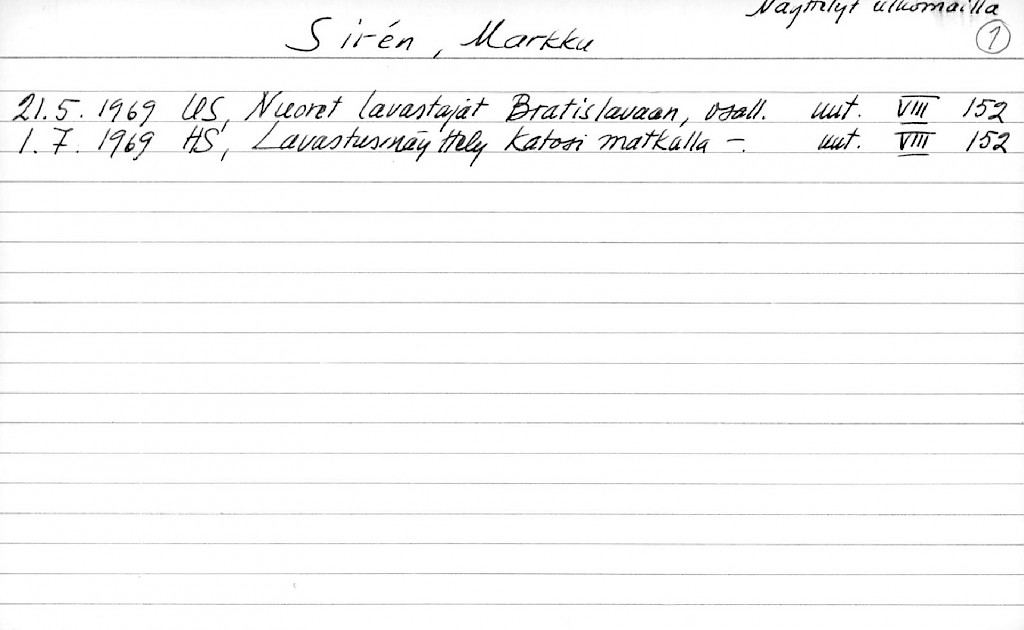 Näyttelyt ulkomailla
Sirén, Markku 1
21.5. 1969 US, Nuoret lavastajat Bratislavaan, osall. uut. VIII 152
1.7. 1969 HS, Lavastusnäyttely katosi matkalla -. uut. VIII 152